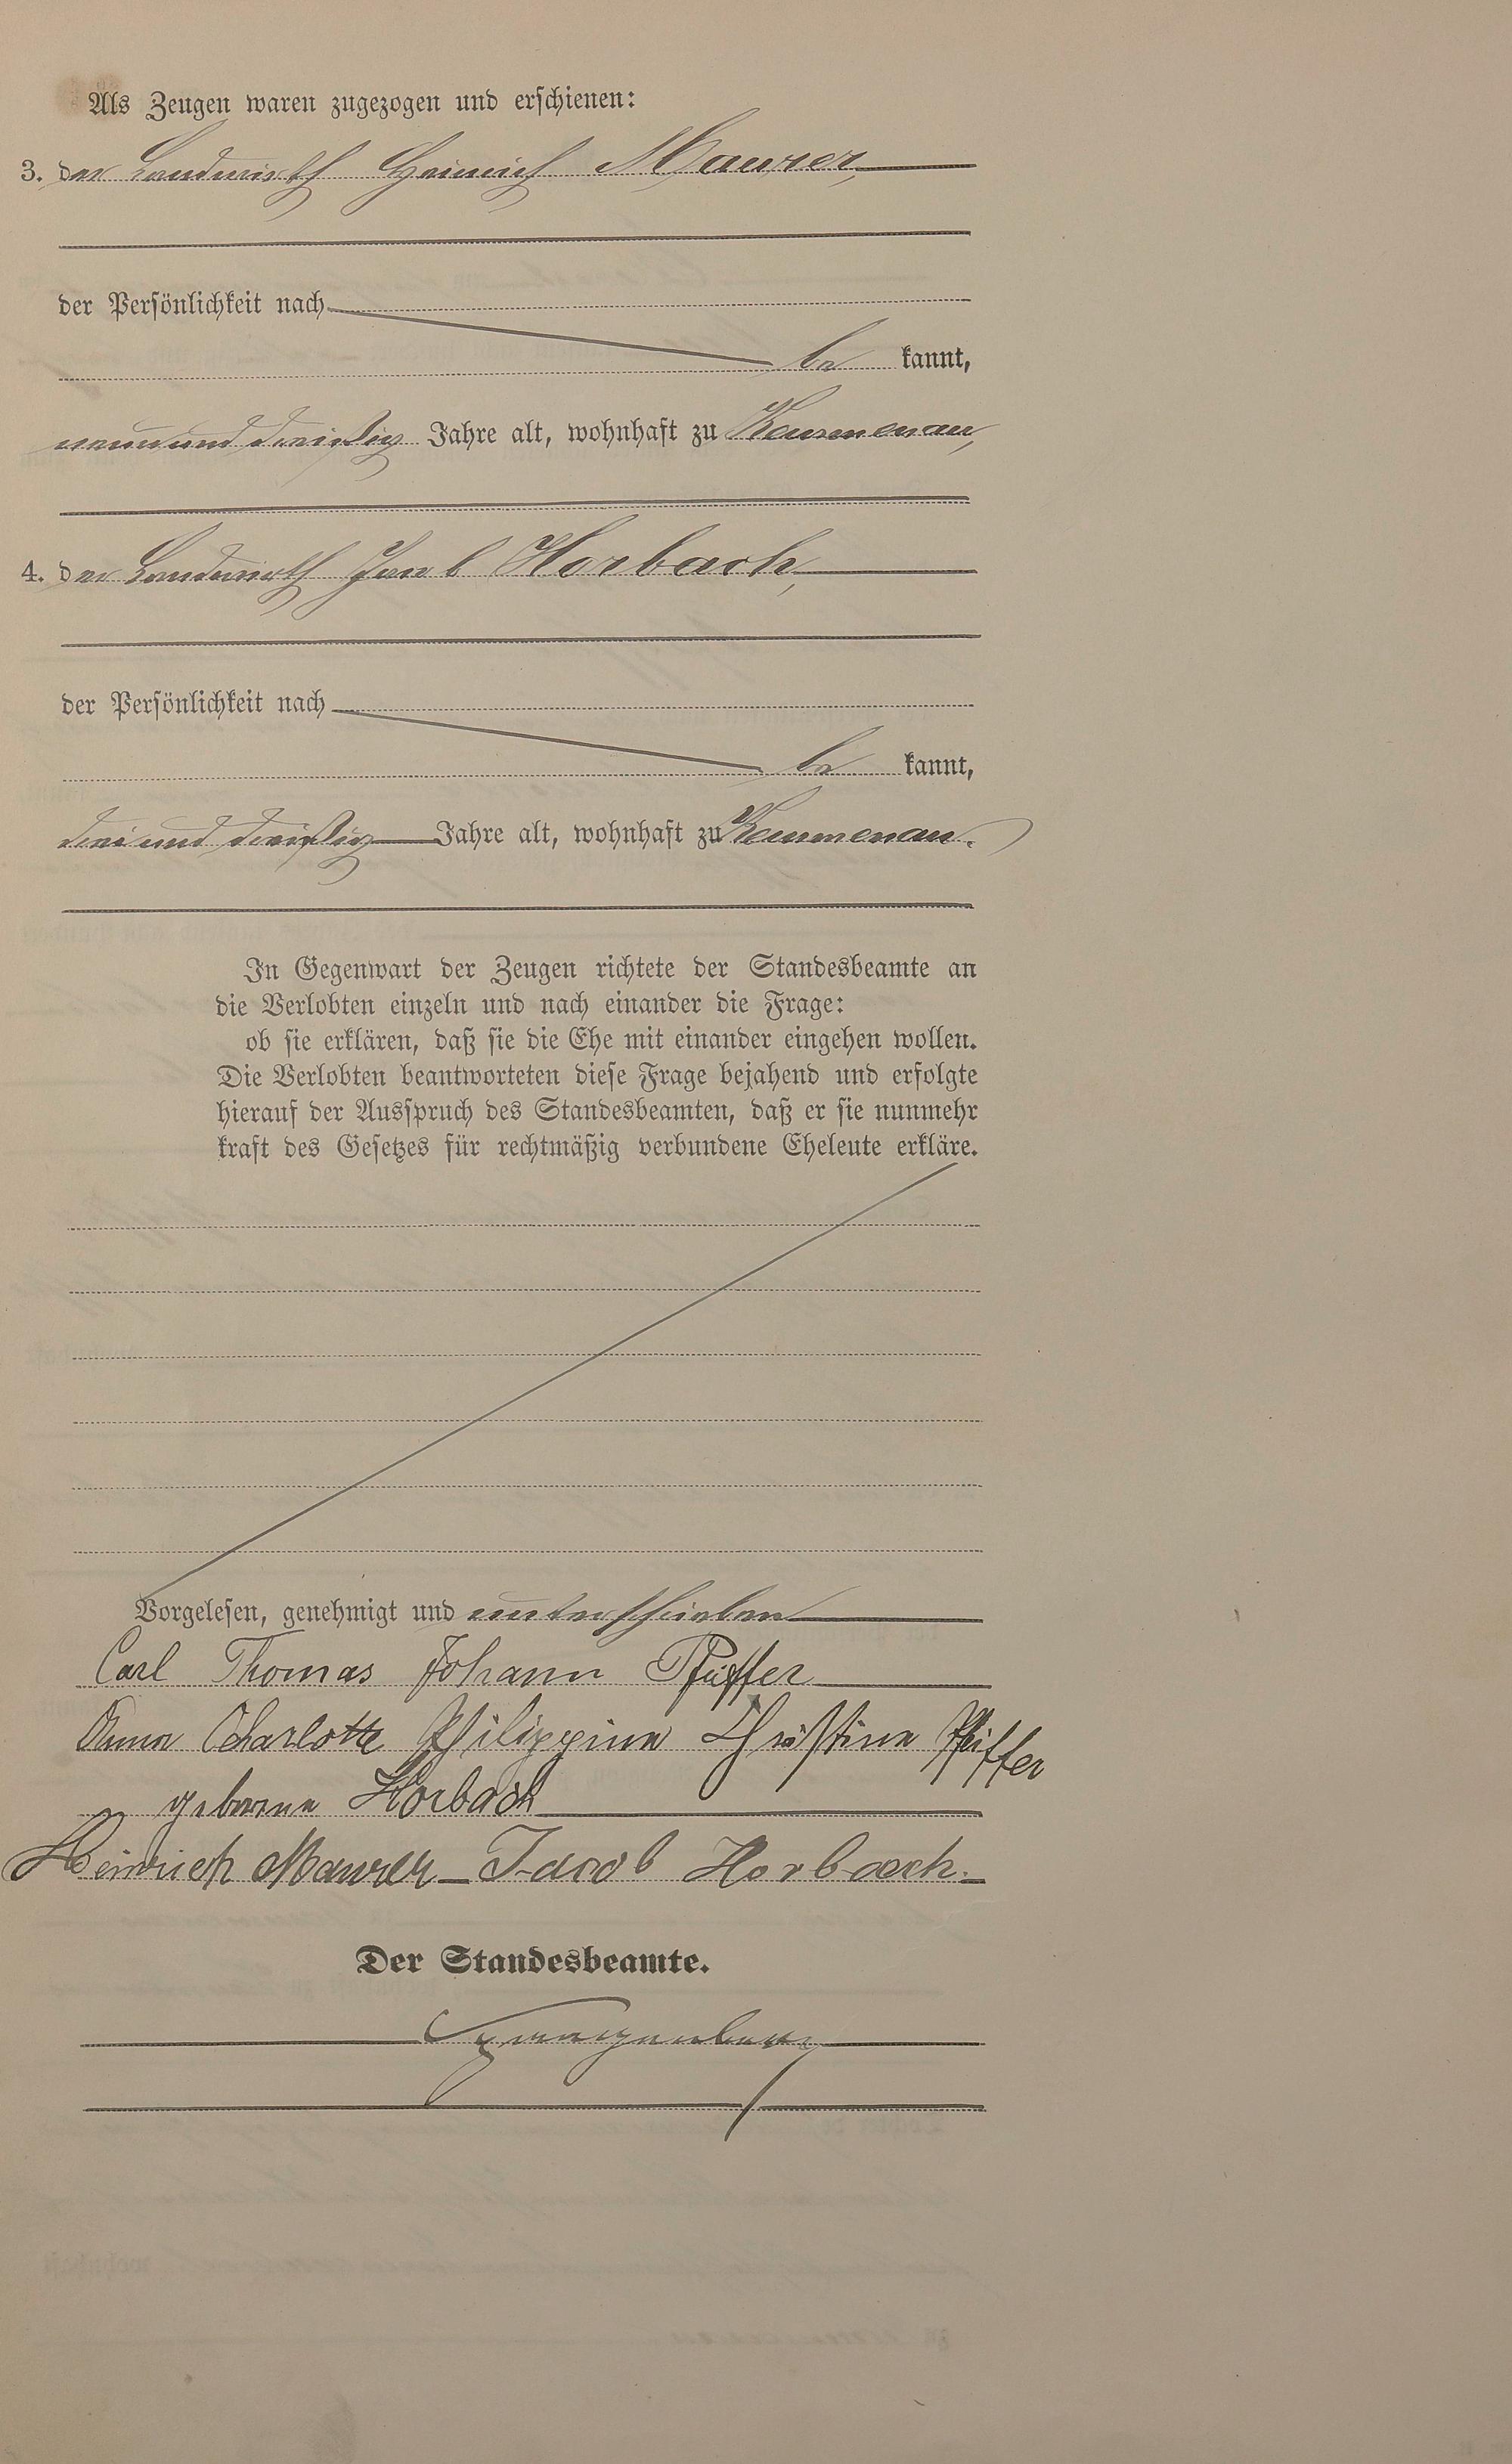 Als Zeugen waren zugezogen und erschienen:
3. der Landwirth Heinrich Maurer,
der Persönlichkeit nach
be kannt,
neunund dreißig Jahre alt, wohnhaft zu Kemmenau,
4. der Landwirth Jacob Horbach,
der Persönlichkeit nach
be kannt,
drei und dreißig Jahre alt, wohnhaft zu Kemmenau.
In Gegenwart der Zeugen richtete der Standesbeamte an
die Verlobten einzeln und nach einander die Frage:
ob sie erklären, daß sie die Ehe mit einander eingehen wollen.
Die Verlobten beantworteten diese Frage bejahend und erfolgte
hierauf der Ausspruch des Standesbeamten, daß er sie nunmehr
kraft des Gesetzes für rechtmäßig verbundene Eheleute erkläre.
Vorgelesen, genehmigt und unterschrieben
Carl Thomas Johann Pfeiffer
Anna Charlotte Philippine Christine Pfeiffer
geborene Horbach
Heinrich Maurer Jacob Horbach.
Der Standesbeamte.